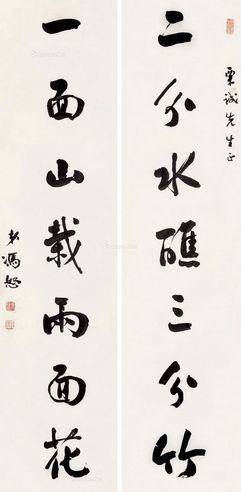 栗誠先生正
二分水醮三分竹
一面山栽兩面花
弟馮恕